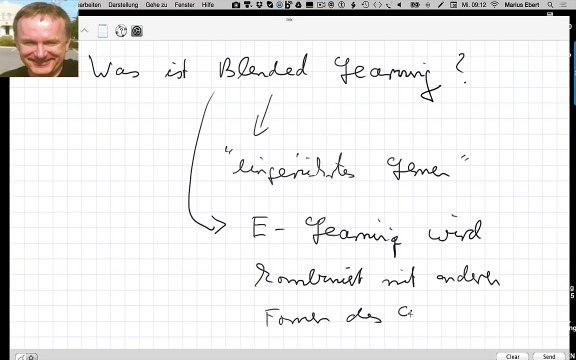 earbeiten Darstellung Gehe zu Fenster Hilfe Mi. 09:12 Marius Ebert
Was ist Blended Learning?
"eingerührtes Lernen"
E-Learning wird
kombiniert mit anderen
Formen des
Clear Send